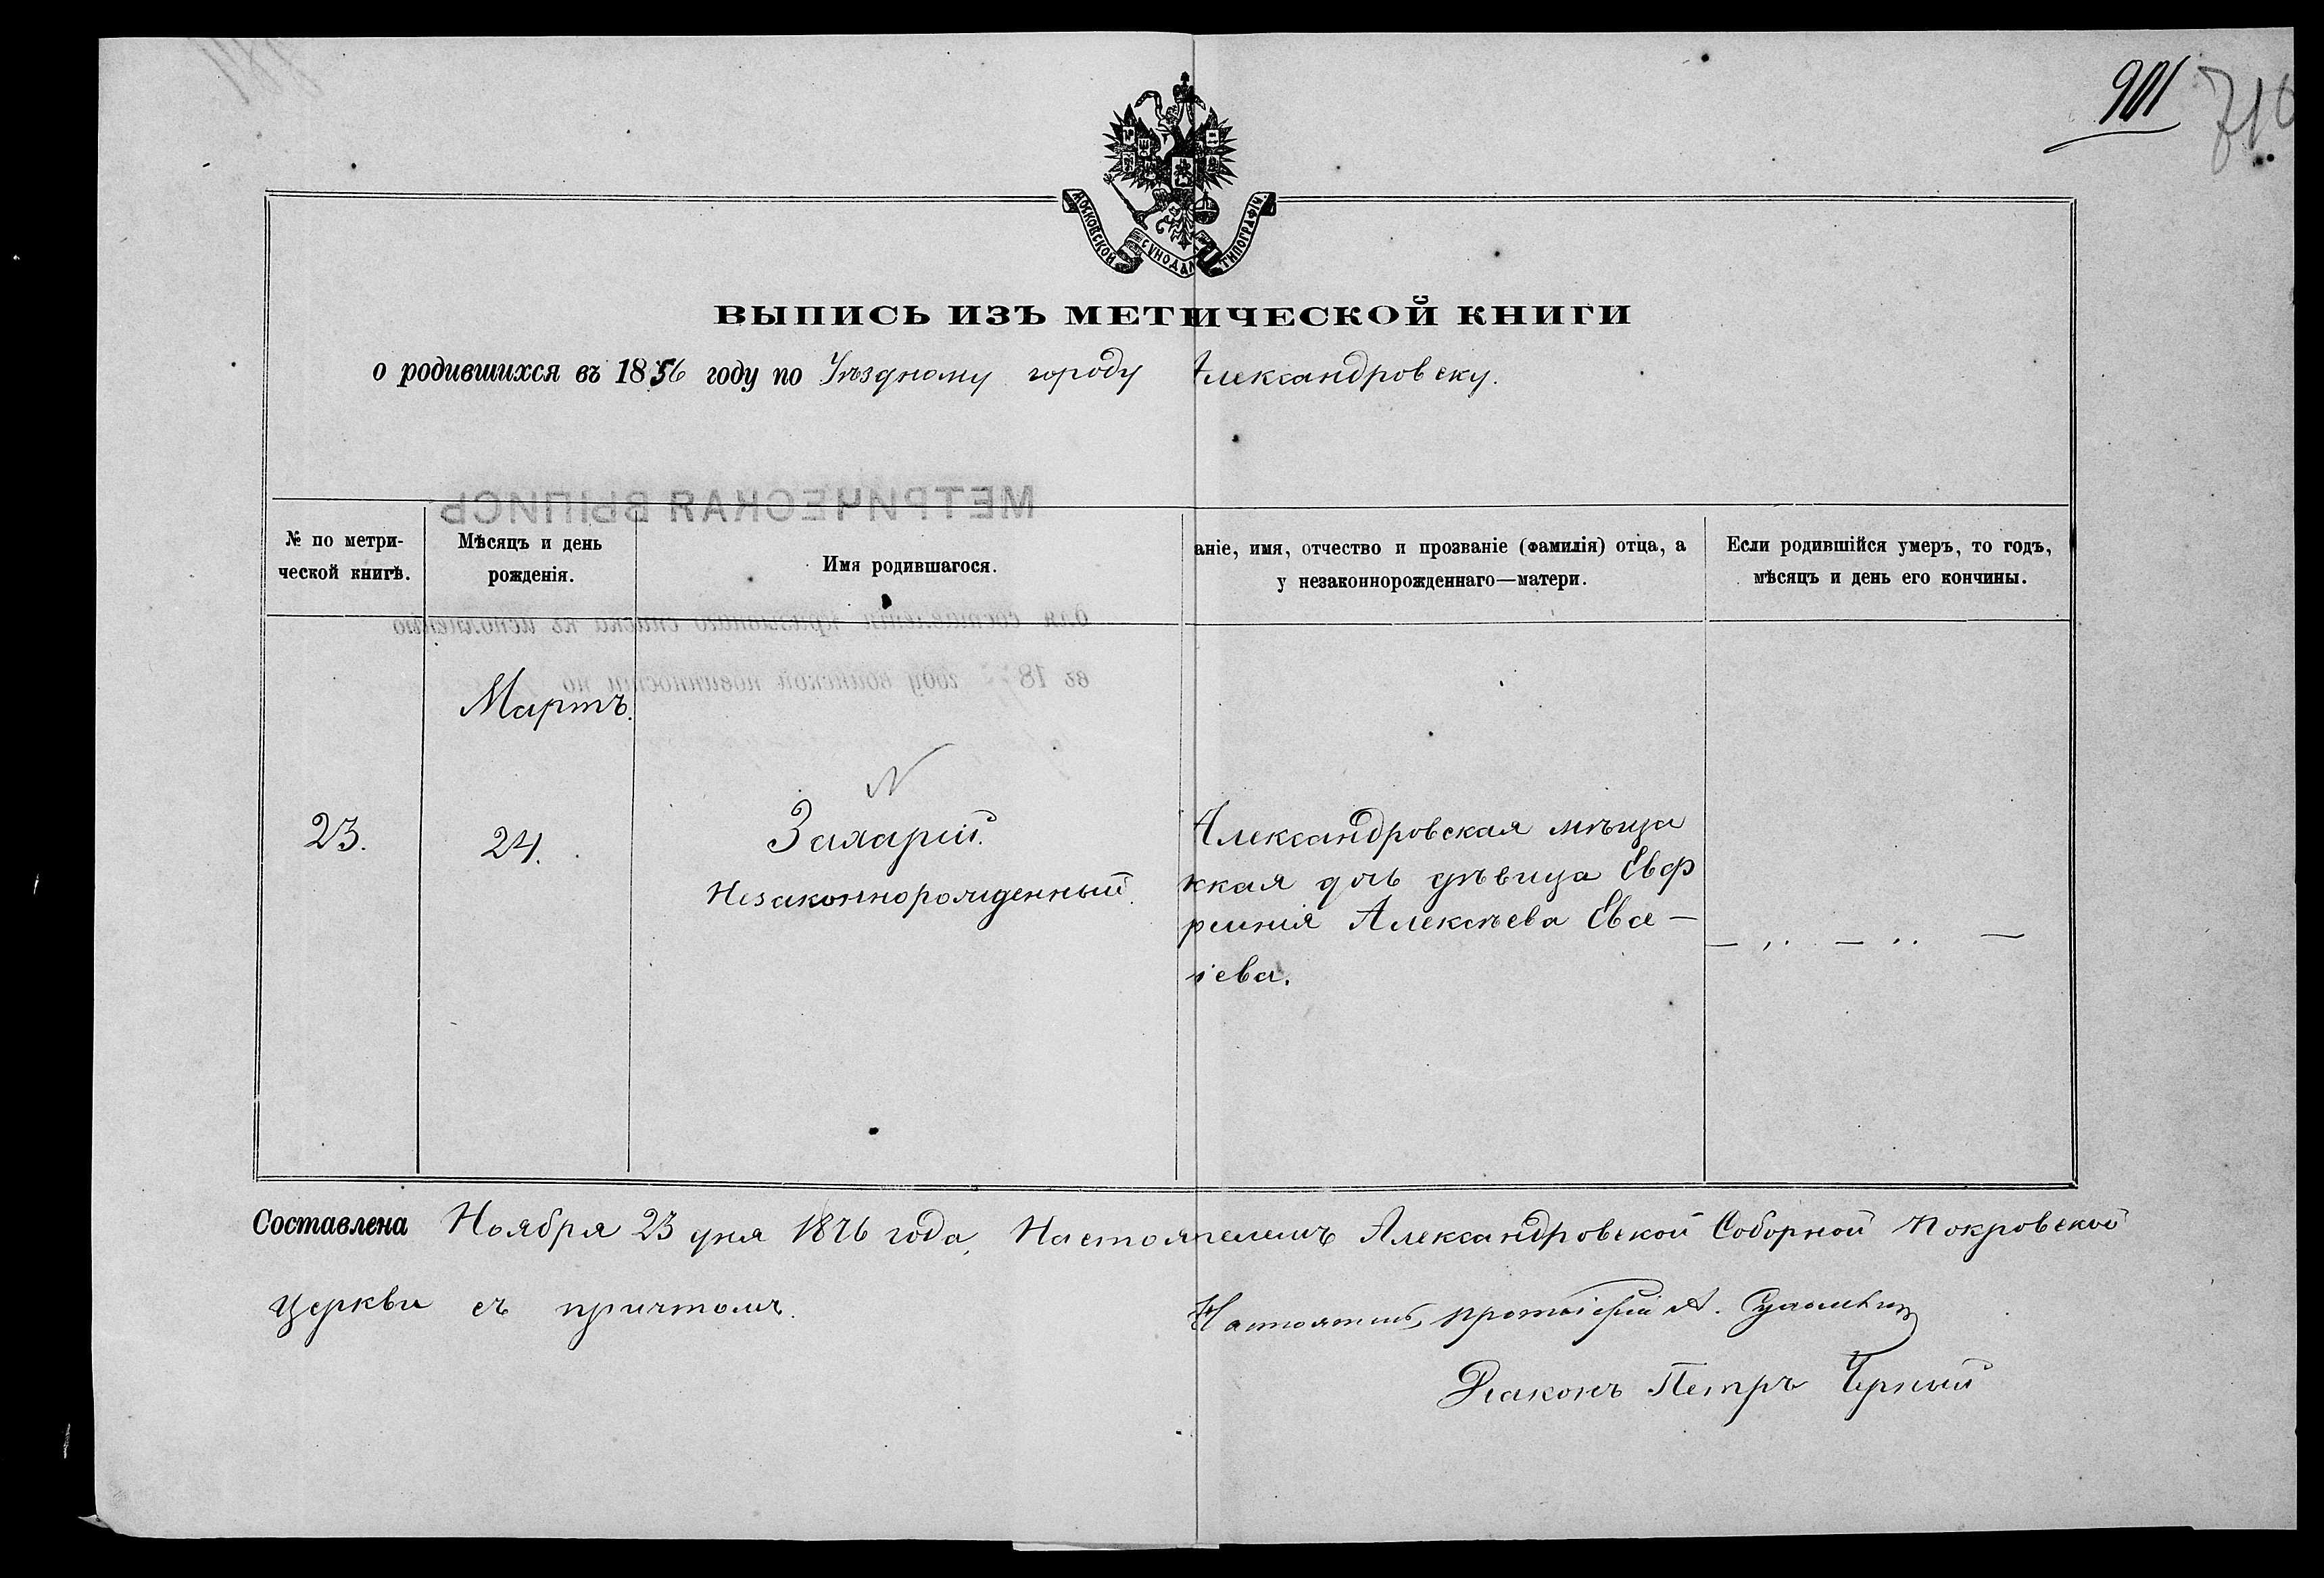 901
710
МОСКОВСКОЙ СѴНОДАЛ ТИПОГРАФІИ.
ВЫПИСЬ ИЗЪ МЕТИЧЕСКОЙ КНИГИ
о родившихся въ 1856 году по Уѣздному городу Александровску.
МЕТРИЧЕСКАЯ ВЫПИСЬ
№ по метри-
ческой книгѣ.
Мѣсяцъ и день
рожденія.
Имя родившагося.
аніе, имя, отчество и прозваніе (фамилія) отца, а
у незаконнорожденнаго—матери.
Если родившійся умеръ, то годъ,
мѣсяцъ и день его кончины.
для составленія призывнаго списка къ исполненію
въ 18 году воинской повинности по
Мартъ.
23.
24.
Захарій.
Незаконнорожденный.
Александровская мѣща
ская дочь дѣвица Евф
росинія Алексѣева Евсе—
іева.
— ,, — ,, —
Составлена Ноября 23 дня 1876 года, Настоятелемъ Александровской Соборной Покровской
церкви съ причтомъ.
Настоятель, протоіерей А.
Діаконъ Петръ Черный